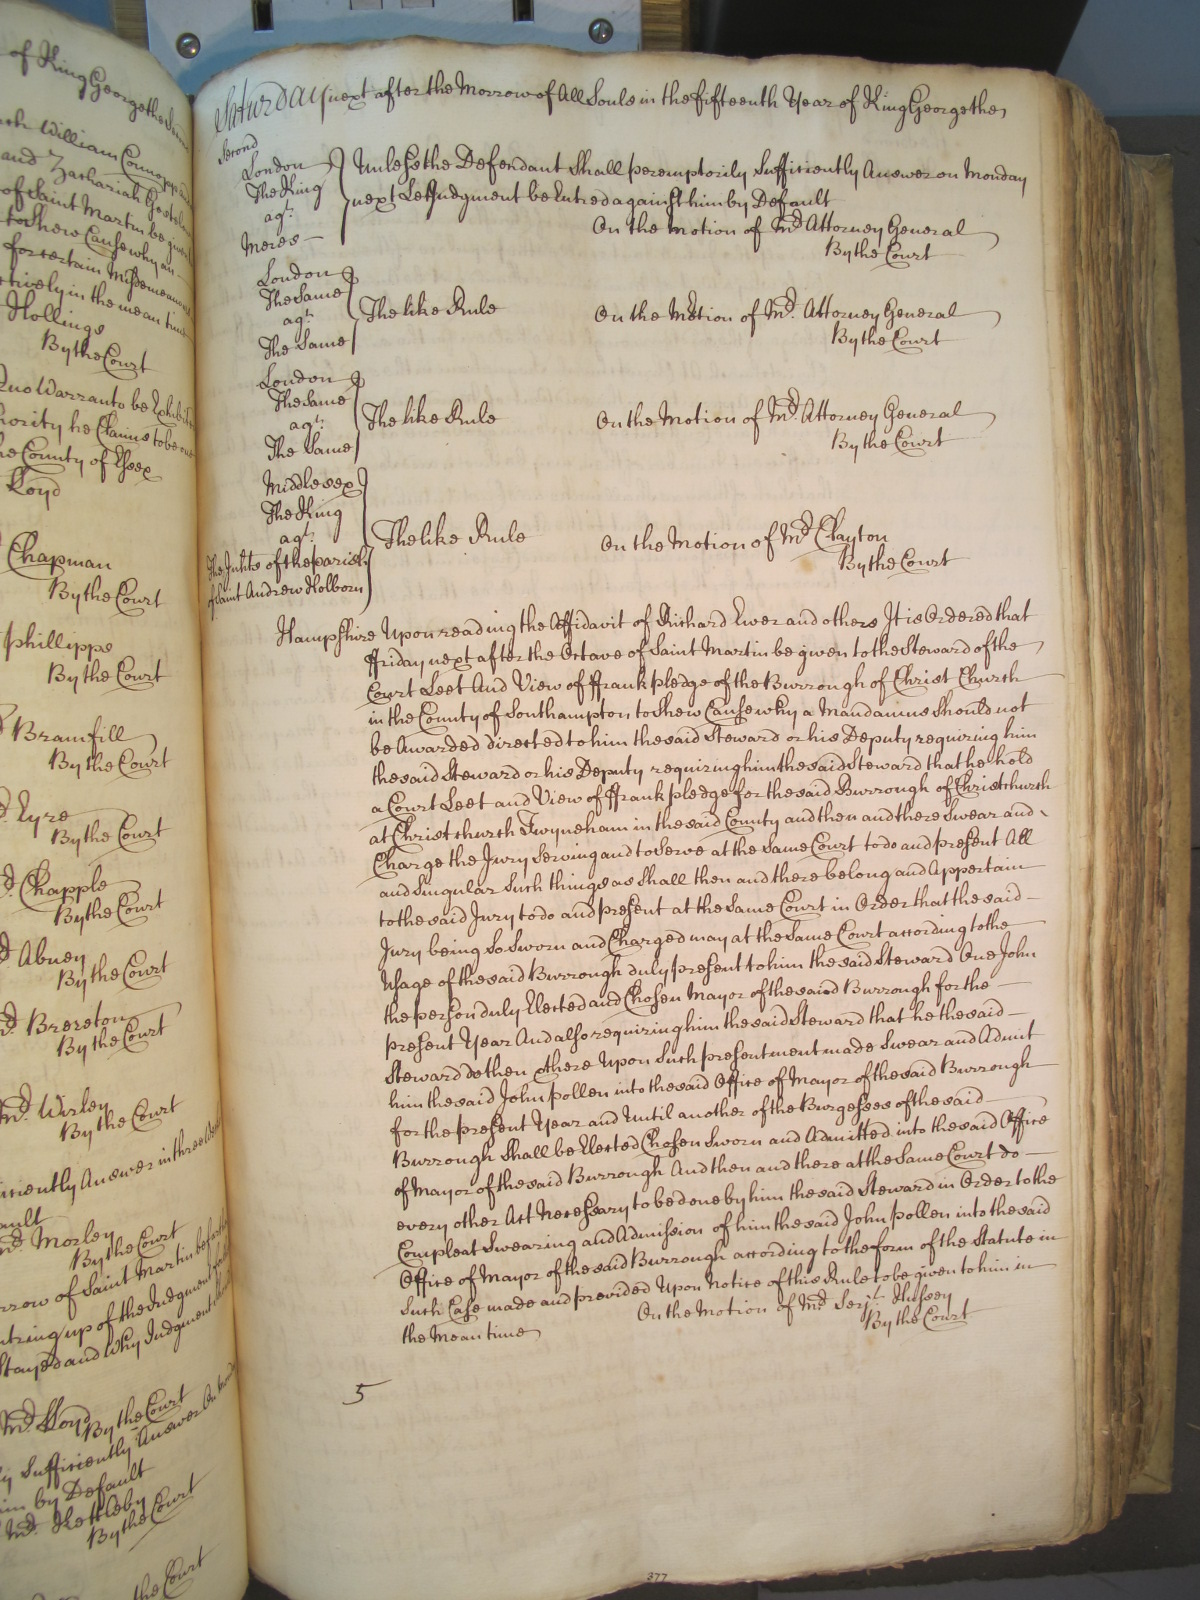 of King George the
with William
and Zachariah
of Saint Martin be given
to Shew Cause why an
for certain Misdemeanors
in the mean time
Hollings
By the Court
Quo Warranto be Exhibited
he Claims to be
the County of Essex
Loyd
Chapman
By the Court
phillipps
By the Court
Bramfill
By the Court
Eyre
By the Court
Chapple
By the Court
Abney
By the Court
Brereton
By the Court
Mr. Wirley
By the Court
Answer in three
Mr. Morley
By the Court
of Saint Martin before
up of the Judgment
Stayed and Why Judgment
Mr. Loyd
By the Court
Sufficiently Answer On
by Default
Mr. Kettleby
By the Court
the Court
Saturday next after the Morrow of All Souls in the fifteenth Year of King George the
Second
London
The King
agt.
Meres
Unless the Defendant Shall peremptorily Sufficiently Answer on Monday
next Let Judgment be Entred against him by Default
On the Motion of Mr. Attorney General
By the Court
London
The Same
agt.
The Same
The like Rule
On the Motion of Mr. Attorney General
By the Court
London
The Same
agt.
The Same
The like Rule
On the Motion of Mr. Attorney General
By the Court
Middlesex
The King
agt.
The Inhts of the parish
of Saint Andrew Holborn
The like Rule
On the Motion of Mr. Clayton
By the Court
Hampshire Upon reading the Affidavit of Richard Ewer and others It is Ordered that
ffriday next after the Octave of Saint Martin be given to the Steward of the
Court Leet And View of ffrankpledge of the Burrough of Christ Church
in the County of Southampton to Shew Cause why a Mandamus Should not
be Awarded directed to him the said Steward or his Deputy requiring him
the said Steward or his Deputy requiring him the said Steward that he hold
a Court Leet and View of ffrankpledge for the said Burrough of Christchurch
at Christchurch Twyneham in the said County and then and there Swear and
Charge the Jury Serving and to Serve at the Same Court to do and present All
and Singular Such things as Shall then and there belong and Appertain
to the said Jury to do and present at the Same Court in Order that the said
Jury being So Sworn and Charged may at the Same Court according to the
Usage of the said Burrough duly present to him the said Steward One John
the person duly Elected and Chosen Mayor of the said Burrough for the
present Year And also requiring him the said Steward that he the said
Steward do then & there Upon Such presentment made Swear and Admit
him the said John pollen into the said Office of Mayor of the said Burrough
for the present Year and Until another of the Burgesses of the said
Burrough Shall be Elected Chosen Sworn and Admitted into the said Office
of Mayor of the said Burrough And then and there at the Same Court do
every other Act Necessary to be done by him the said Steward in Order to the
Compleat Swearing and Admission of him the said John pollen into the said
Office of Mayor of the said Burrough according to the form of the Statute in
Such Case made and provided Upon Notice of this Rule to be given to him in
the Mean time
On the Motion of Mr. Serjt. Hussey
By the Court
5
377